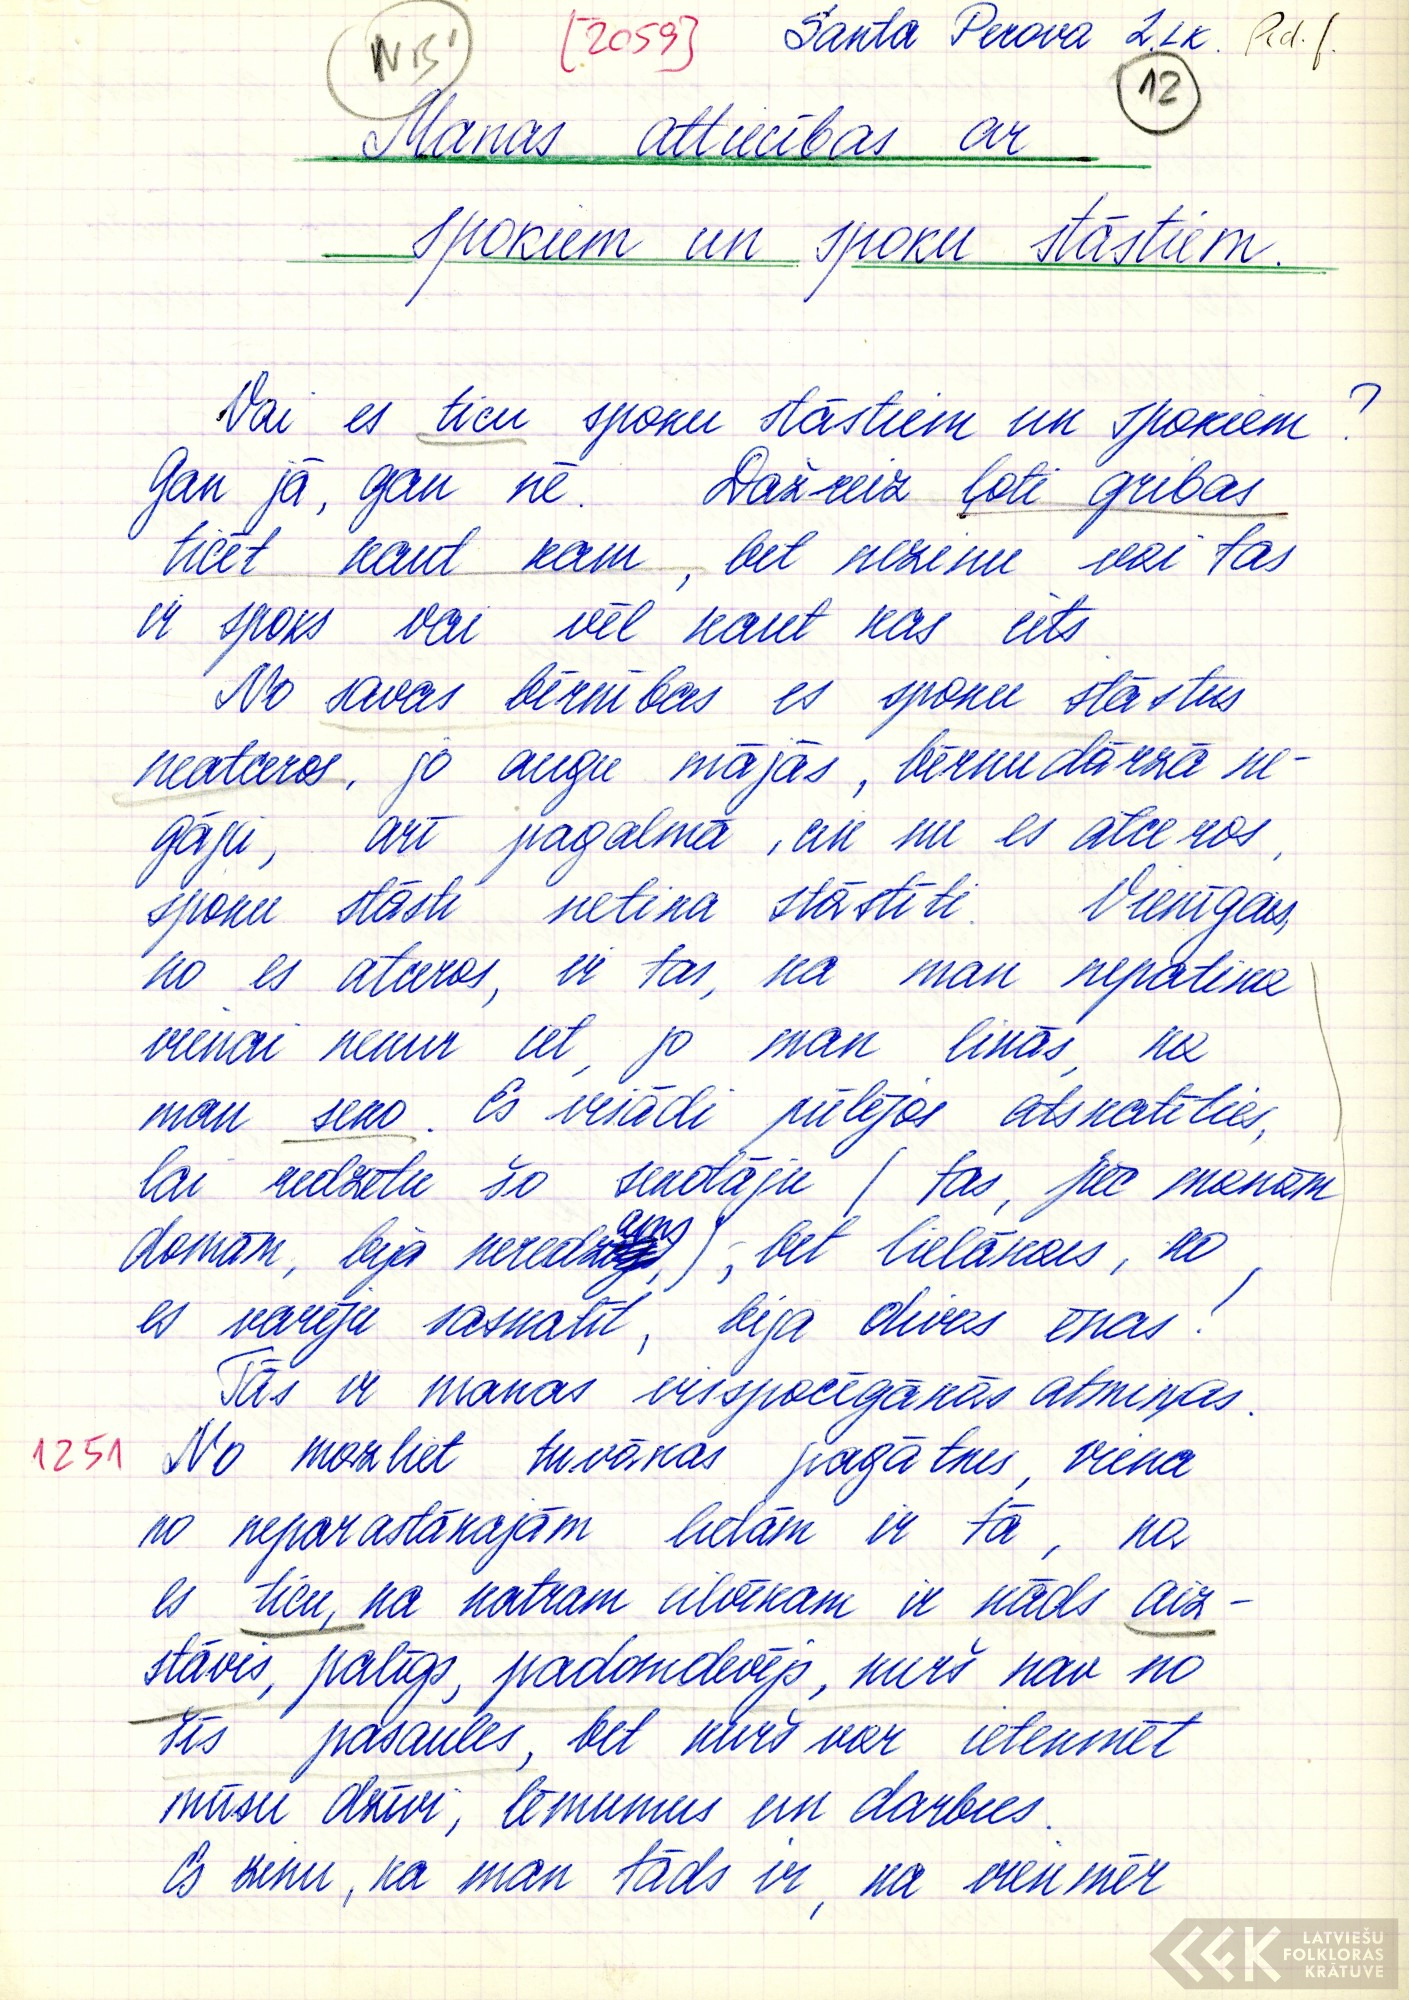 NB! [2059] Santa Perova 2.LK. Ped. f.
12
Manas attiecības ar
spokiem un spoku stāstiem.
Vai es ticu spoku stāstiem un spokiem?
Gan jā, gan nē. Dažreiz ļoti gribas
ticēt kaut kam, bet nezinu vai tas
ir spoks vai vēl kaut kas cits.
No savas bērnības es spoku stāstus
neatceros, jo augu mājās, bērnudārzā ne-
gāju, arī pagalmā, cik nu es atceros,
spoku stāsti netika stāstīti. Vienīgais,
ko es atceros, ir tas, ka man nepatika
vienai nekur iet, jo man likās, ka
man seko. Es visādi pūlējos atskatīties,
lai redzētu šo sekotāju (tas, pēc manām
domām, bija neredzams), bet lielākais, ko
es varēju saskatīt, bija divas ēnas!
Tās ir manas visspocīgākās atmiņas.
1251 No mazliet tuvākas pagātnes, viena
no neparastākajām lietām ir tā, ka
es ticu, ka katram cilvēkam ir kāds aiz-
stāvis, palīgs, padomdevējs, kurš nav no
šīs pasaules, bet kurš var ietekmēt
mūsu dzīvi, lēmumus un darbus.
Es zinu, ka man tāds ir, ka vienmēr
LATVIEŠU
FOLKLORAS
KRĀTUVE